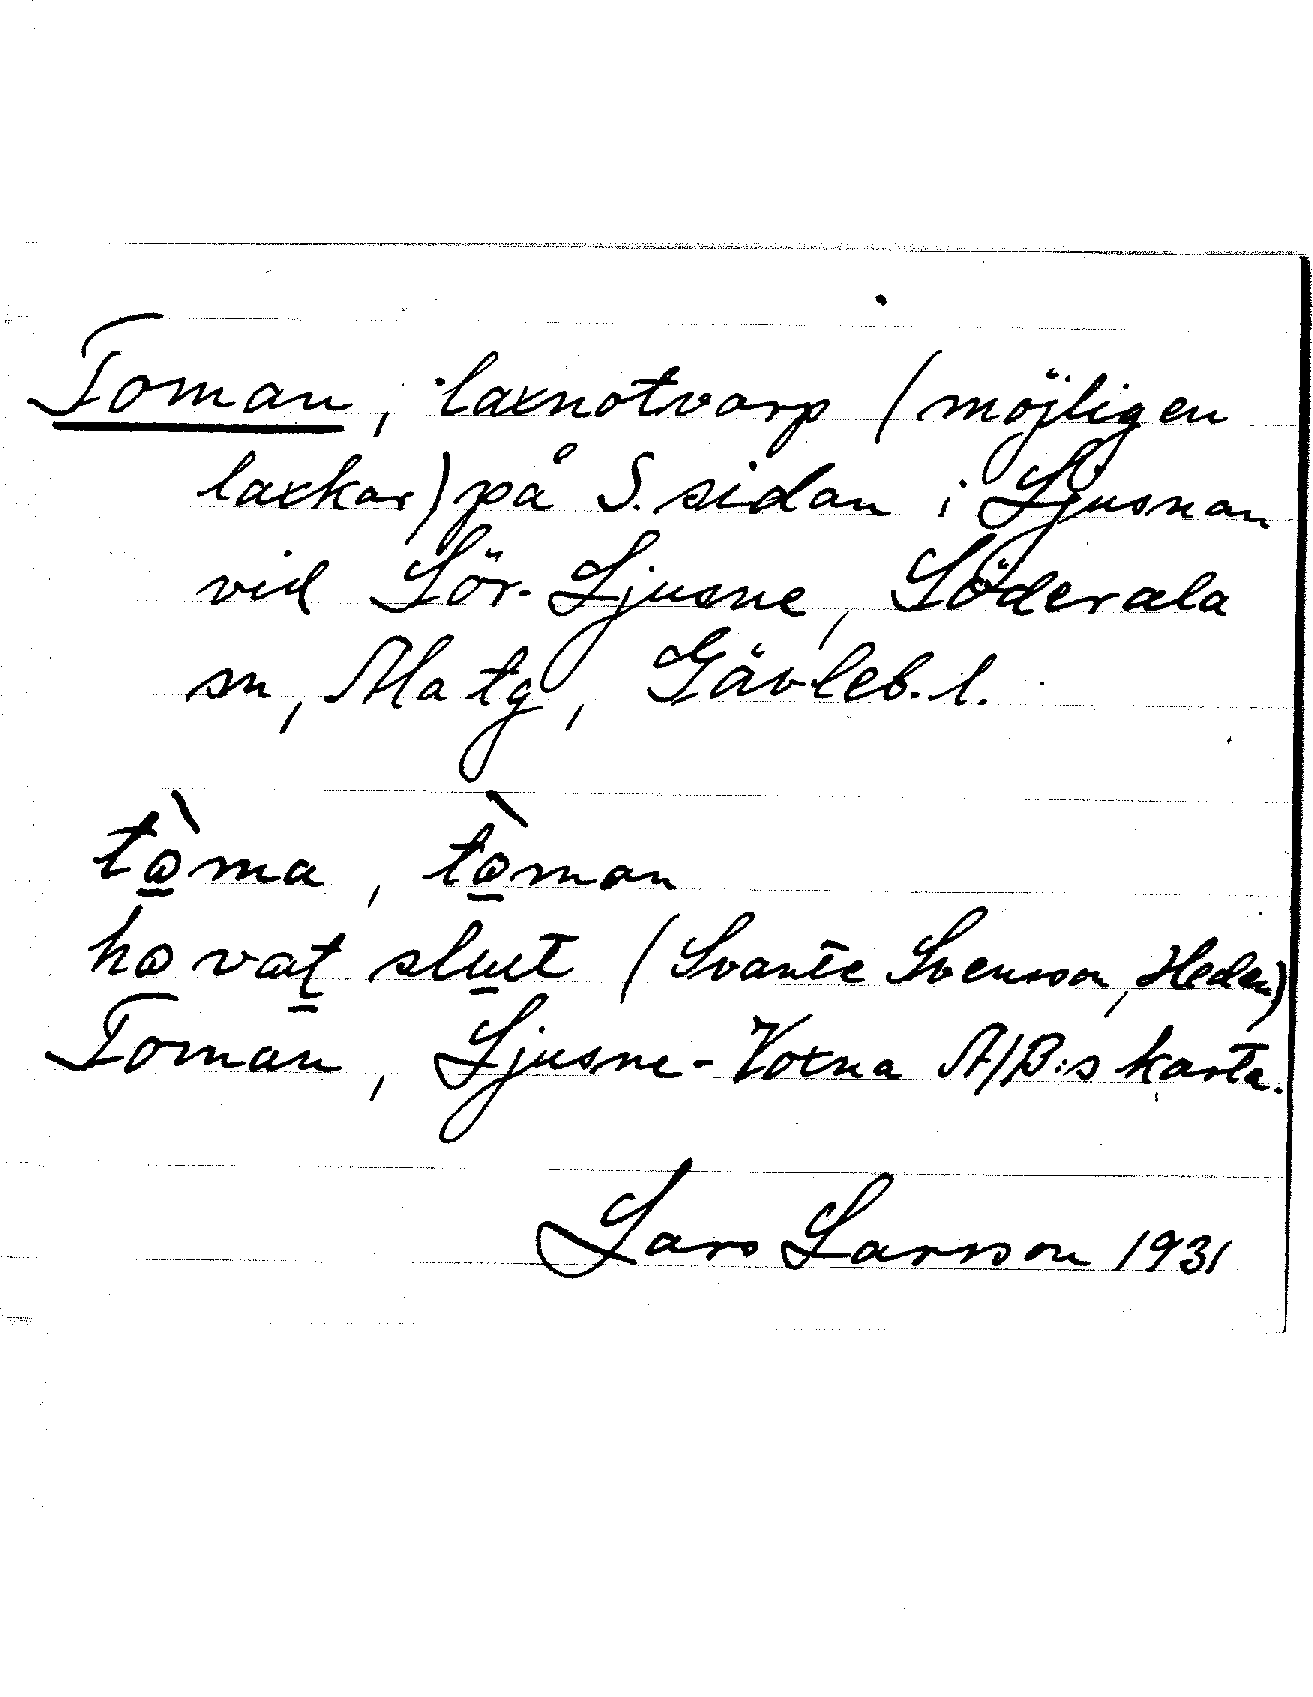 Toman, laxnotvarp (möjligen
laxkar) på S. sidan i Ljusnan
vid Sör-Ljusne, Söderala
sn, Ala tg, Gävleb. l.
tòma, tòman
ha vat slut (Svante Svensson, Heden)
Toman, Ljusne-Voxna A/B:s karta.
Lars Larsson 1931